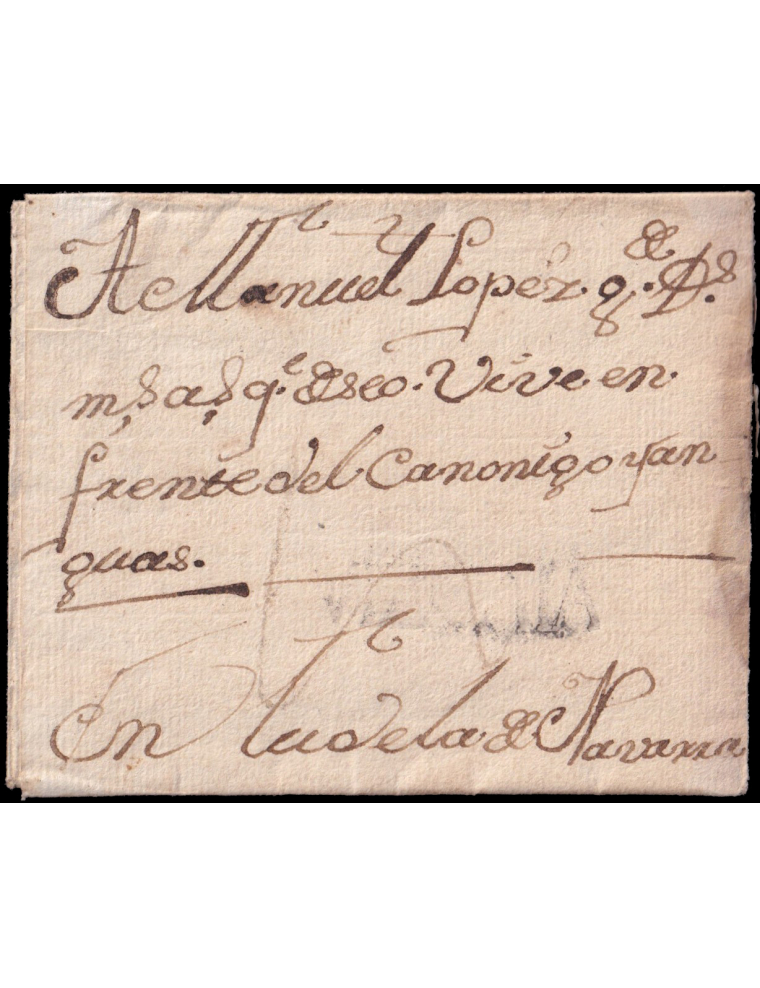 A Manuel Lopez. q.e Ds.
ms. as. q.e deseo. Vive. en.
frente del Canonigo yan
guas.
En tudela de Navarra